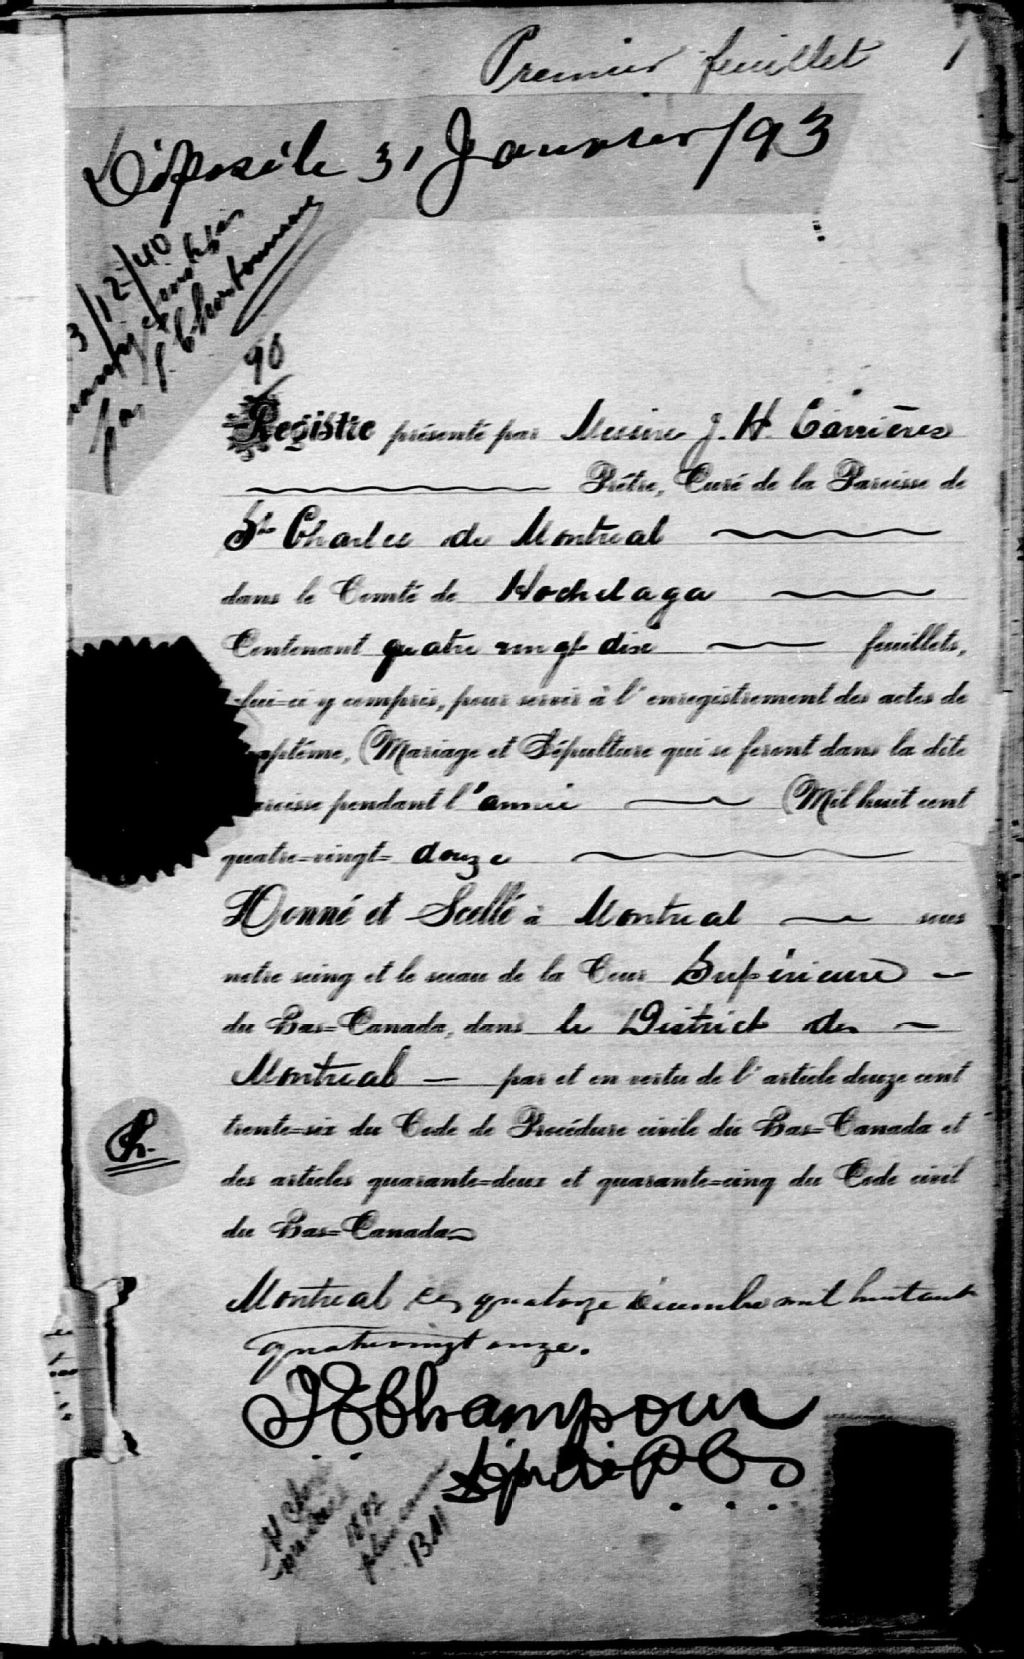 Premier feuillet
1
Déposé le 31 Janvier/93
3/12/40
par P. Charbonneau
90
Registre présenté par Messire J. H. Carrières
Prêtre, Curé de la Paroisse de
St Charles de Montreal
dans le Comté de Hochelaga
Contenant quatre vingt dix feuillets,
celui-ci y compris, pour servir à l'enregistrement des actes de
Baptême, Mariage et Sépulture qui se feront dans la dite
Paroisse pendant l'année Mil huit cent
quatre=vingt= douze
Donné et Scellé à Montreal sous
notre seing et le sceau de la Cour Supérieure
du Bas=Canada, dans le District de
Montreal par et en vertu de l'article douze cent
trente=six du Code de Procédure civile du Bas=Canada et
des articles quarante=deux et quarante=cinq du Code civil
du Bas=Canada
Ch.
Montreal ce quatorze décembre mil huit cent
quatrevingt onze.
Champoux
Dép. P.C.S.
St Chs
1892
BM